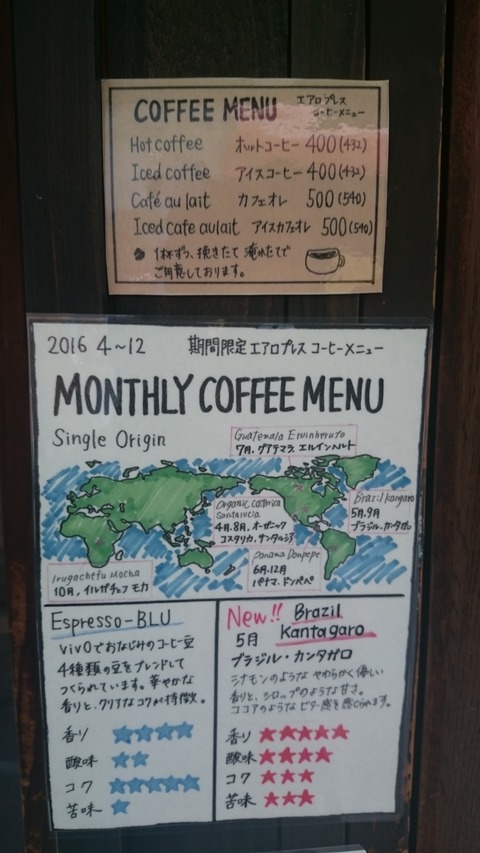 COFFEE MENU エアロプレス
コーヒーメニュー
Hot coffee ホットコーヒー 400(432)
Iced coffee アイスコーヒー 400(432)
Café au lait カフェオレ 500(540)
Iced cafe aulait アイスカフェオレ 500(540)
1杯ずつ、挽きたて 淹れたてで
ご用意しております。
2016 4~12 期間限定 エアロプレス コーヒーメニュー
MONTHLY COFFEE MENU
Single Origin
Guatemala Ervinheruto
7月. グアテマラ エルインヘルト
Organic Costarica
Santalucia
4月.8月. オーガニック
コスタリカ.サンタルシア
Brazil kangaro
5月.9月
ブラジル.カンタガロ
Panama Donpepe
6月.12月
パナマ.ドンペペ
Irugachefu Mocha
10月. イルガチェフ モカ
Espresso-BLU
VIVOでおなじみのコーヒー豆
4種類の豆をブレンドして
つくられています。華やかな
香りと、クリアなコクが特徴。
香り ★★★★
酸味 ★★
コク ★★★★★
苦味 ★
New!! Brazil
5月 Kantagaro
ブラジル・カンタガロ
シナモンのような やわらかく優しい
香りと、シロップのような甘さ。
ココアのような ビター感を感じられます。
香り ★★★★★
酸味 ★★★★
コク ★★★
苦味 ★★★